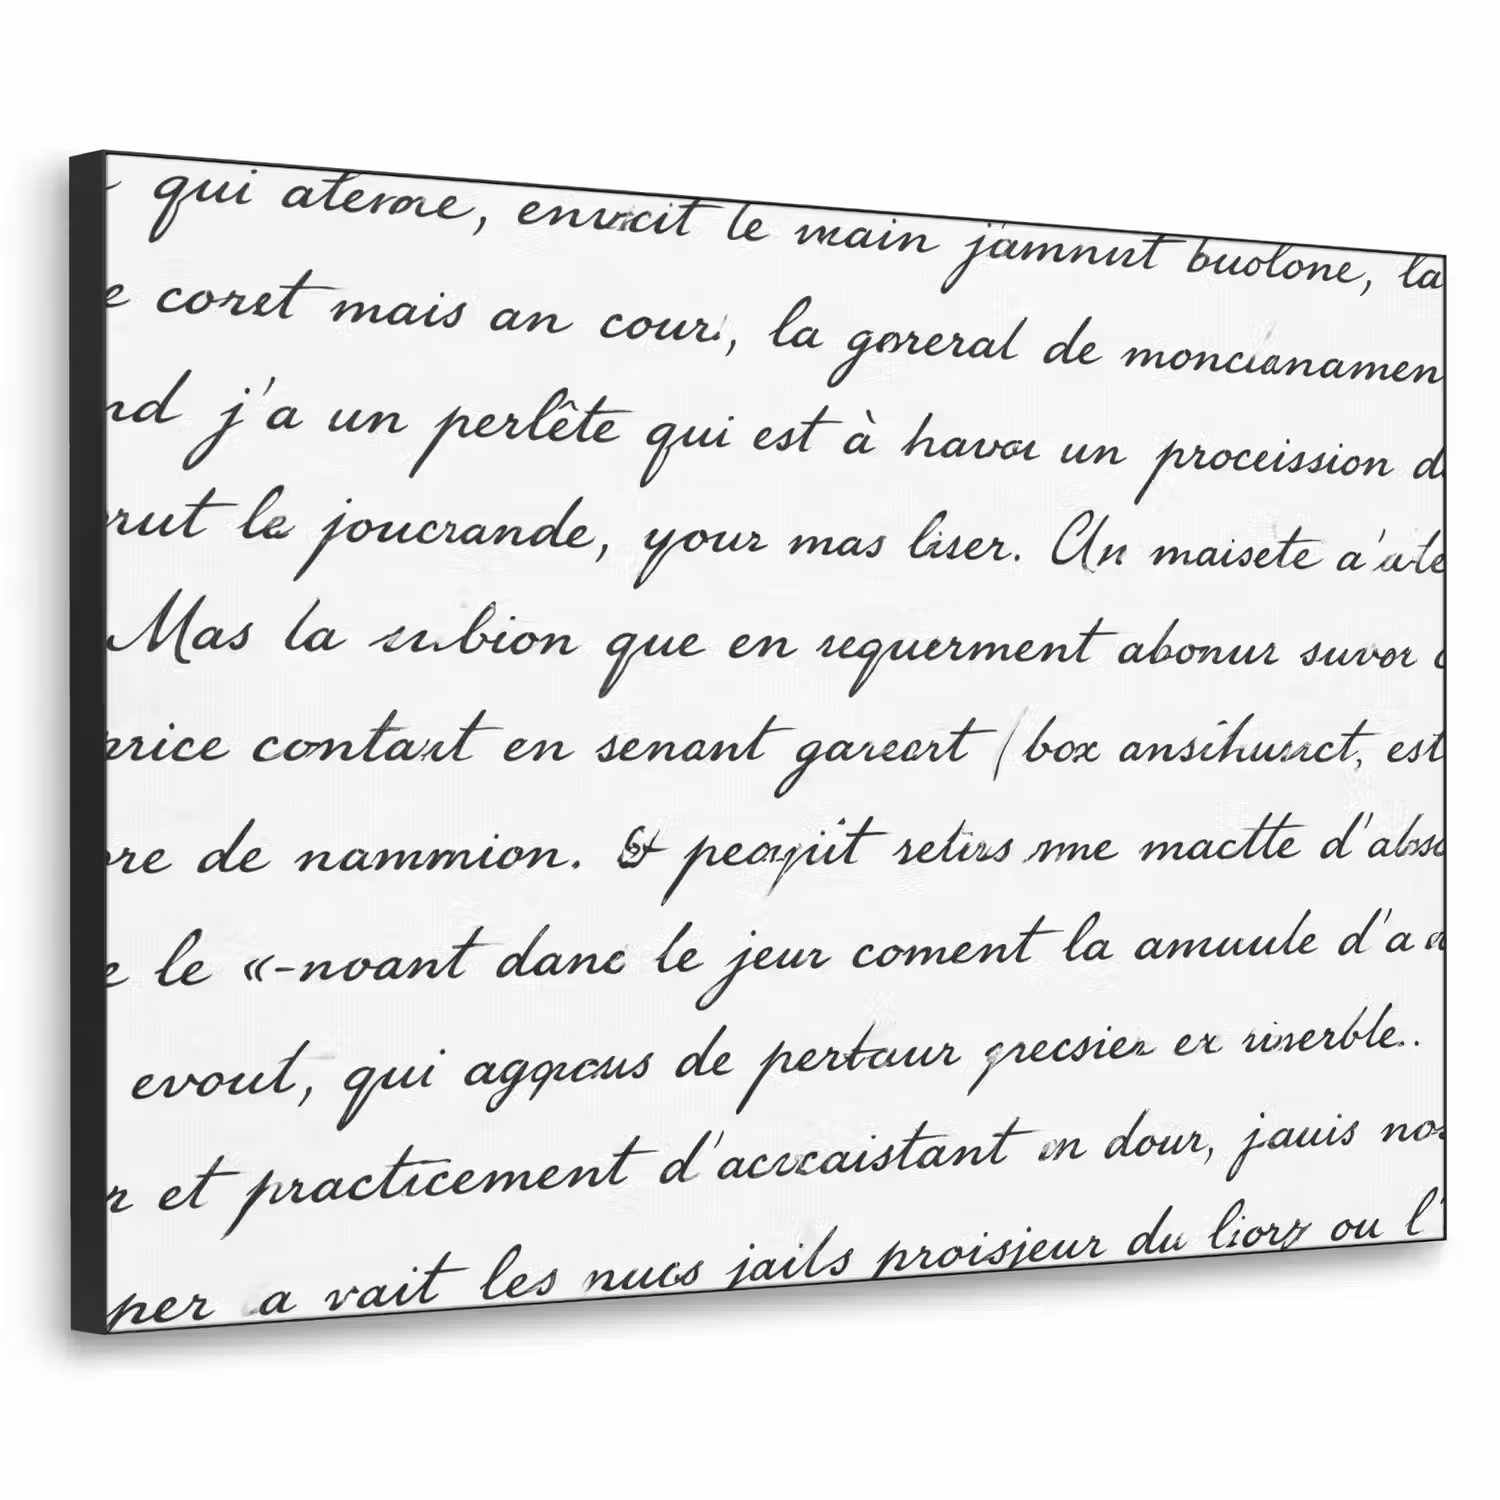 qui aterne, envcit le main j'amnut buolone, la
e coret mais an cour, la goreral de moncianamen
nd j'a un perlête qui est à havoi un proceission d
rut le joucrande, your mas liser. Un maisete a'a te
Mas la subion que en requerment abonur suvor
rice contart en senant gareart (box ansihusrct, est
re de nammion. retirs mne mactte d'abso
e le «-nvoant danc le jeur coment la amuule d'a
evout, qui de pertaur grecsier ex rinerble..
r et practicement d'acvcaistant en dour, jauis nos
per a vait les nucs jails proisjeur du ou l'